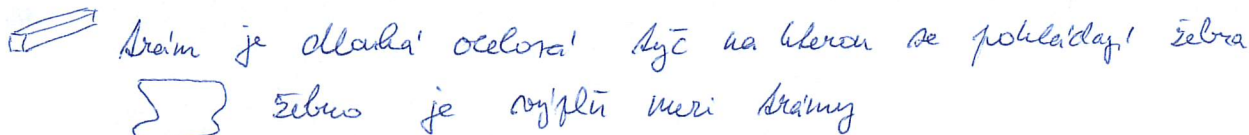 trám je dlouhá ocelová tyč na kterou se pokládají žebra
žebro je výplň mezi trámy